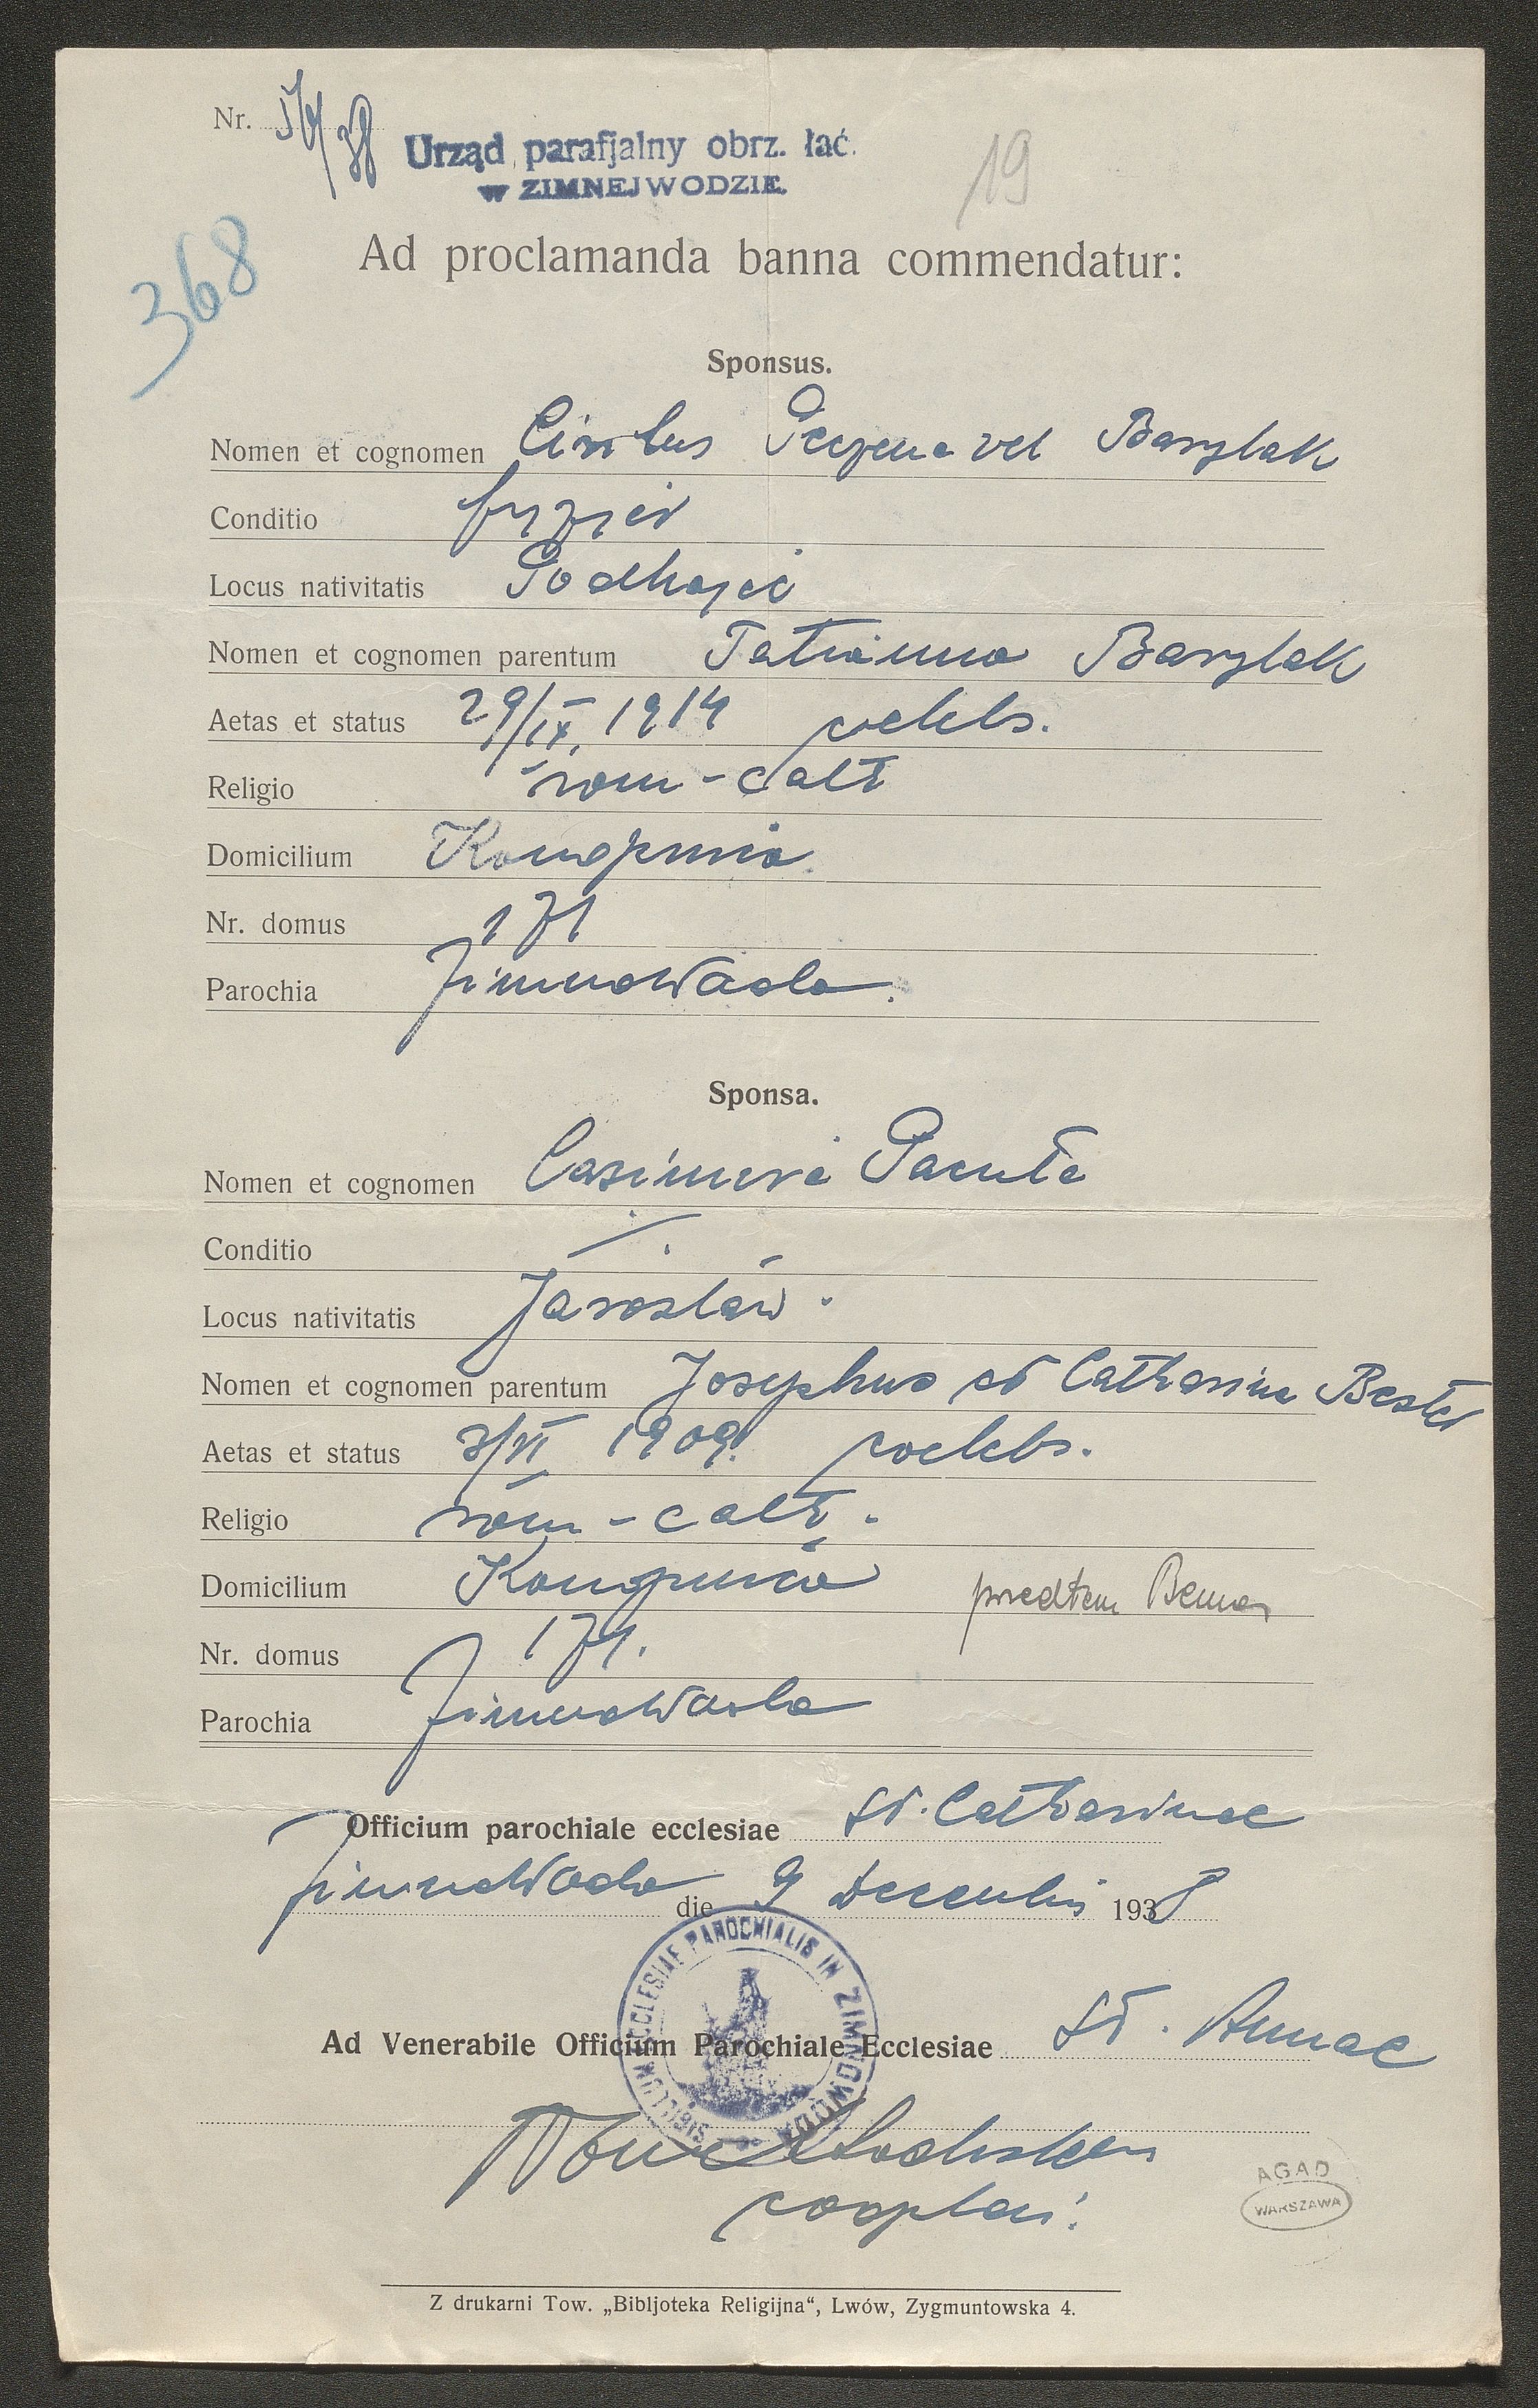 Nr. /38
Urząd parafjalny obrz. łać.
w ZIMNEJWODZIE.
19
368
Ad proclamanda banna commendatur:
Sponsus.
Nomen et cognomen vel Barylak
Conditio fryzjer
Locus nativitatis Podhajce
Nomen et cognomen parentum Tatianna Barylak
Aetas et status 29/IX. 1914 coelebs.
Religio rom-cath
Domicilium Konopnica
Nr. domus 171
Parochia Zimnawoda.
Sponsa.
Nomen et cognomen Casimira Pacuła
Conditio /
Locus nativitatis Jarosław.
Nomen et cognomen parentum Josephus et Catharina Bester
Aetas et status 3/VI 1909. coelebs.
Religio rom-cath.
Domicilium Konopnica przedtem Bema
Nr. domus 171.
Parochia Zimnawoda
Officium parochiale ecclesiae St. Catharinae
Zimnawoda die 9 Decembris 1938
SIGILLUM ECCLESIAE PAROCHIALIS IN ZIMNOWODA
Ad Venerabile Officium Parochiale Ecclesiae St. Annae
AGAD
WARSZAWA
Z drukarni Tow. „Bibljoteka Religijna“, Lwów, Zygmuntowska 4.